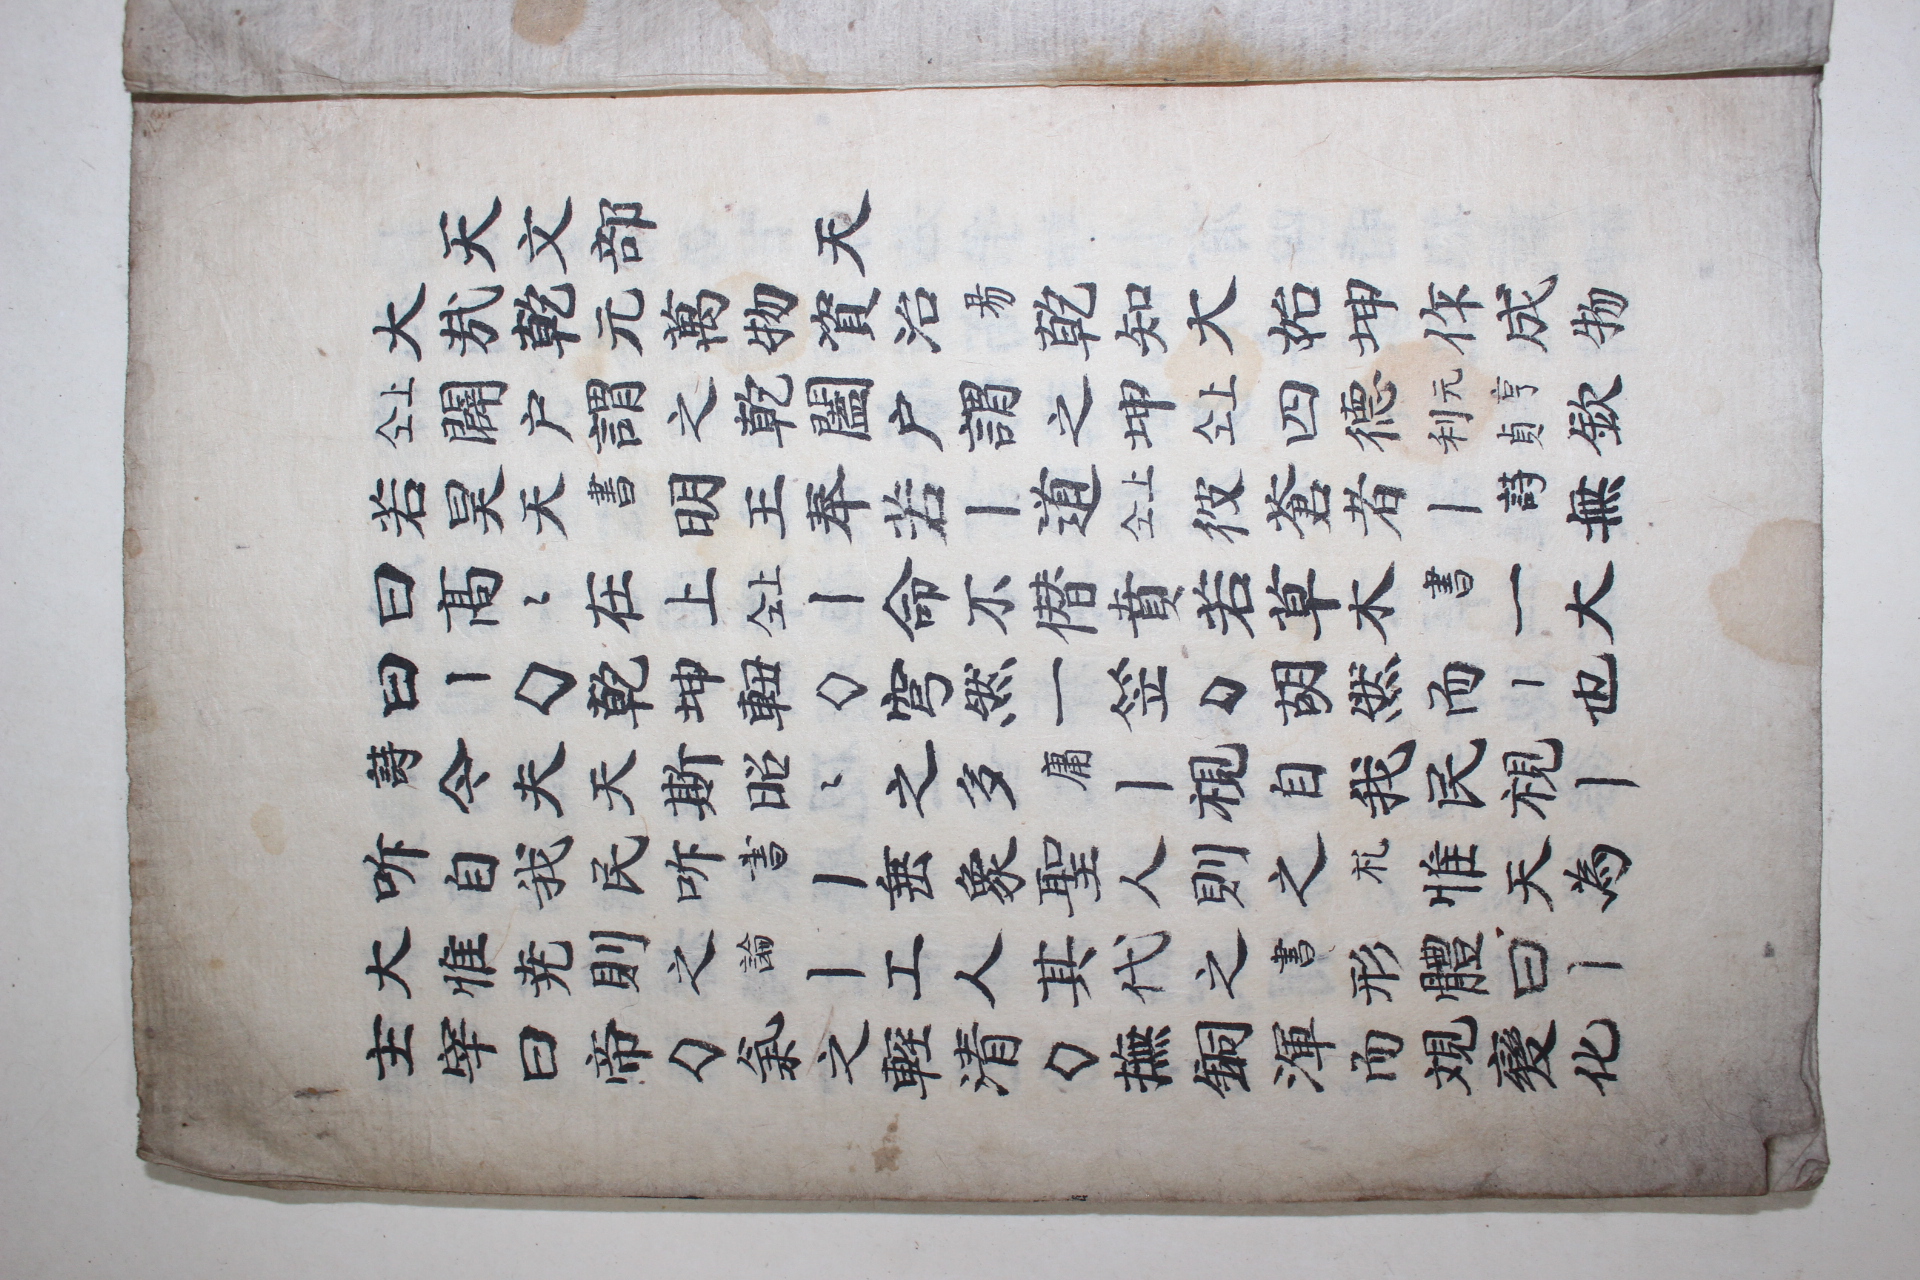 天文部 天
大㢤乾元萬物資治易乾知大始坤作成物
上仝闢户謂之乾闔户謂之坤上仝四德元亨利貞欽
若昊天書明王奉若丨道上仝彼蒼者丨詩無
曰髙〻在上上仝丨命不僣賁若草木書一大
曰丨〇乾坤軸〇穹然一笠〇胡然而丨也
詩今夫天斯昭〻之多庸丨視自我民視丨
听自我民听書丨垂象聖人則之礼惟天為
大惟尭則之論丨工人其代之書形體曰丨
主宰曰帝〇氣之輕清〇撫銅渾而覌變化